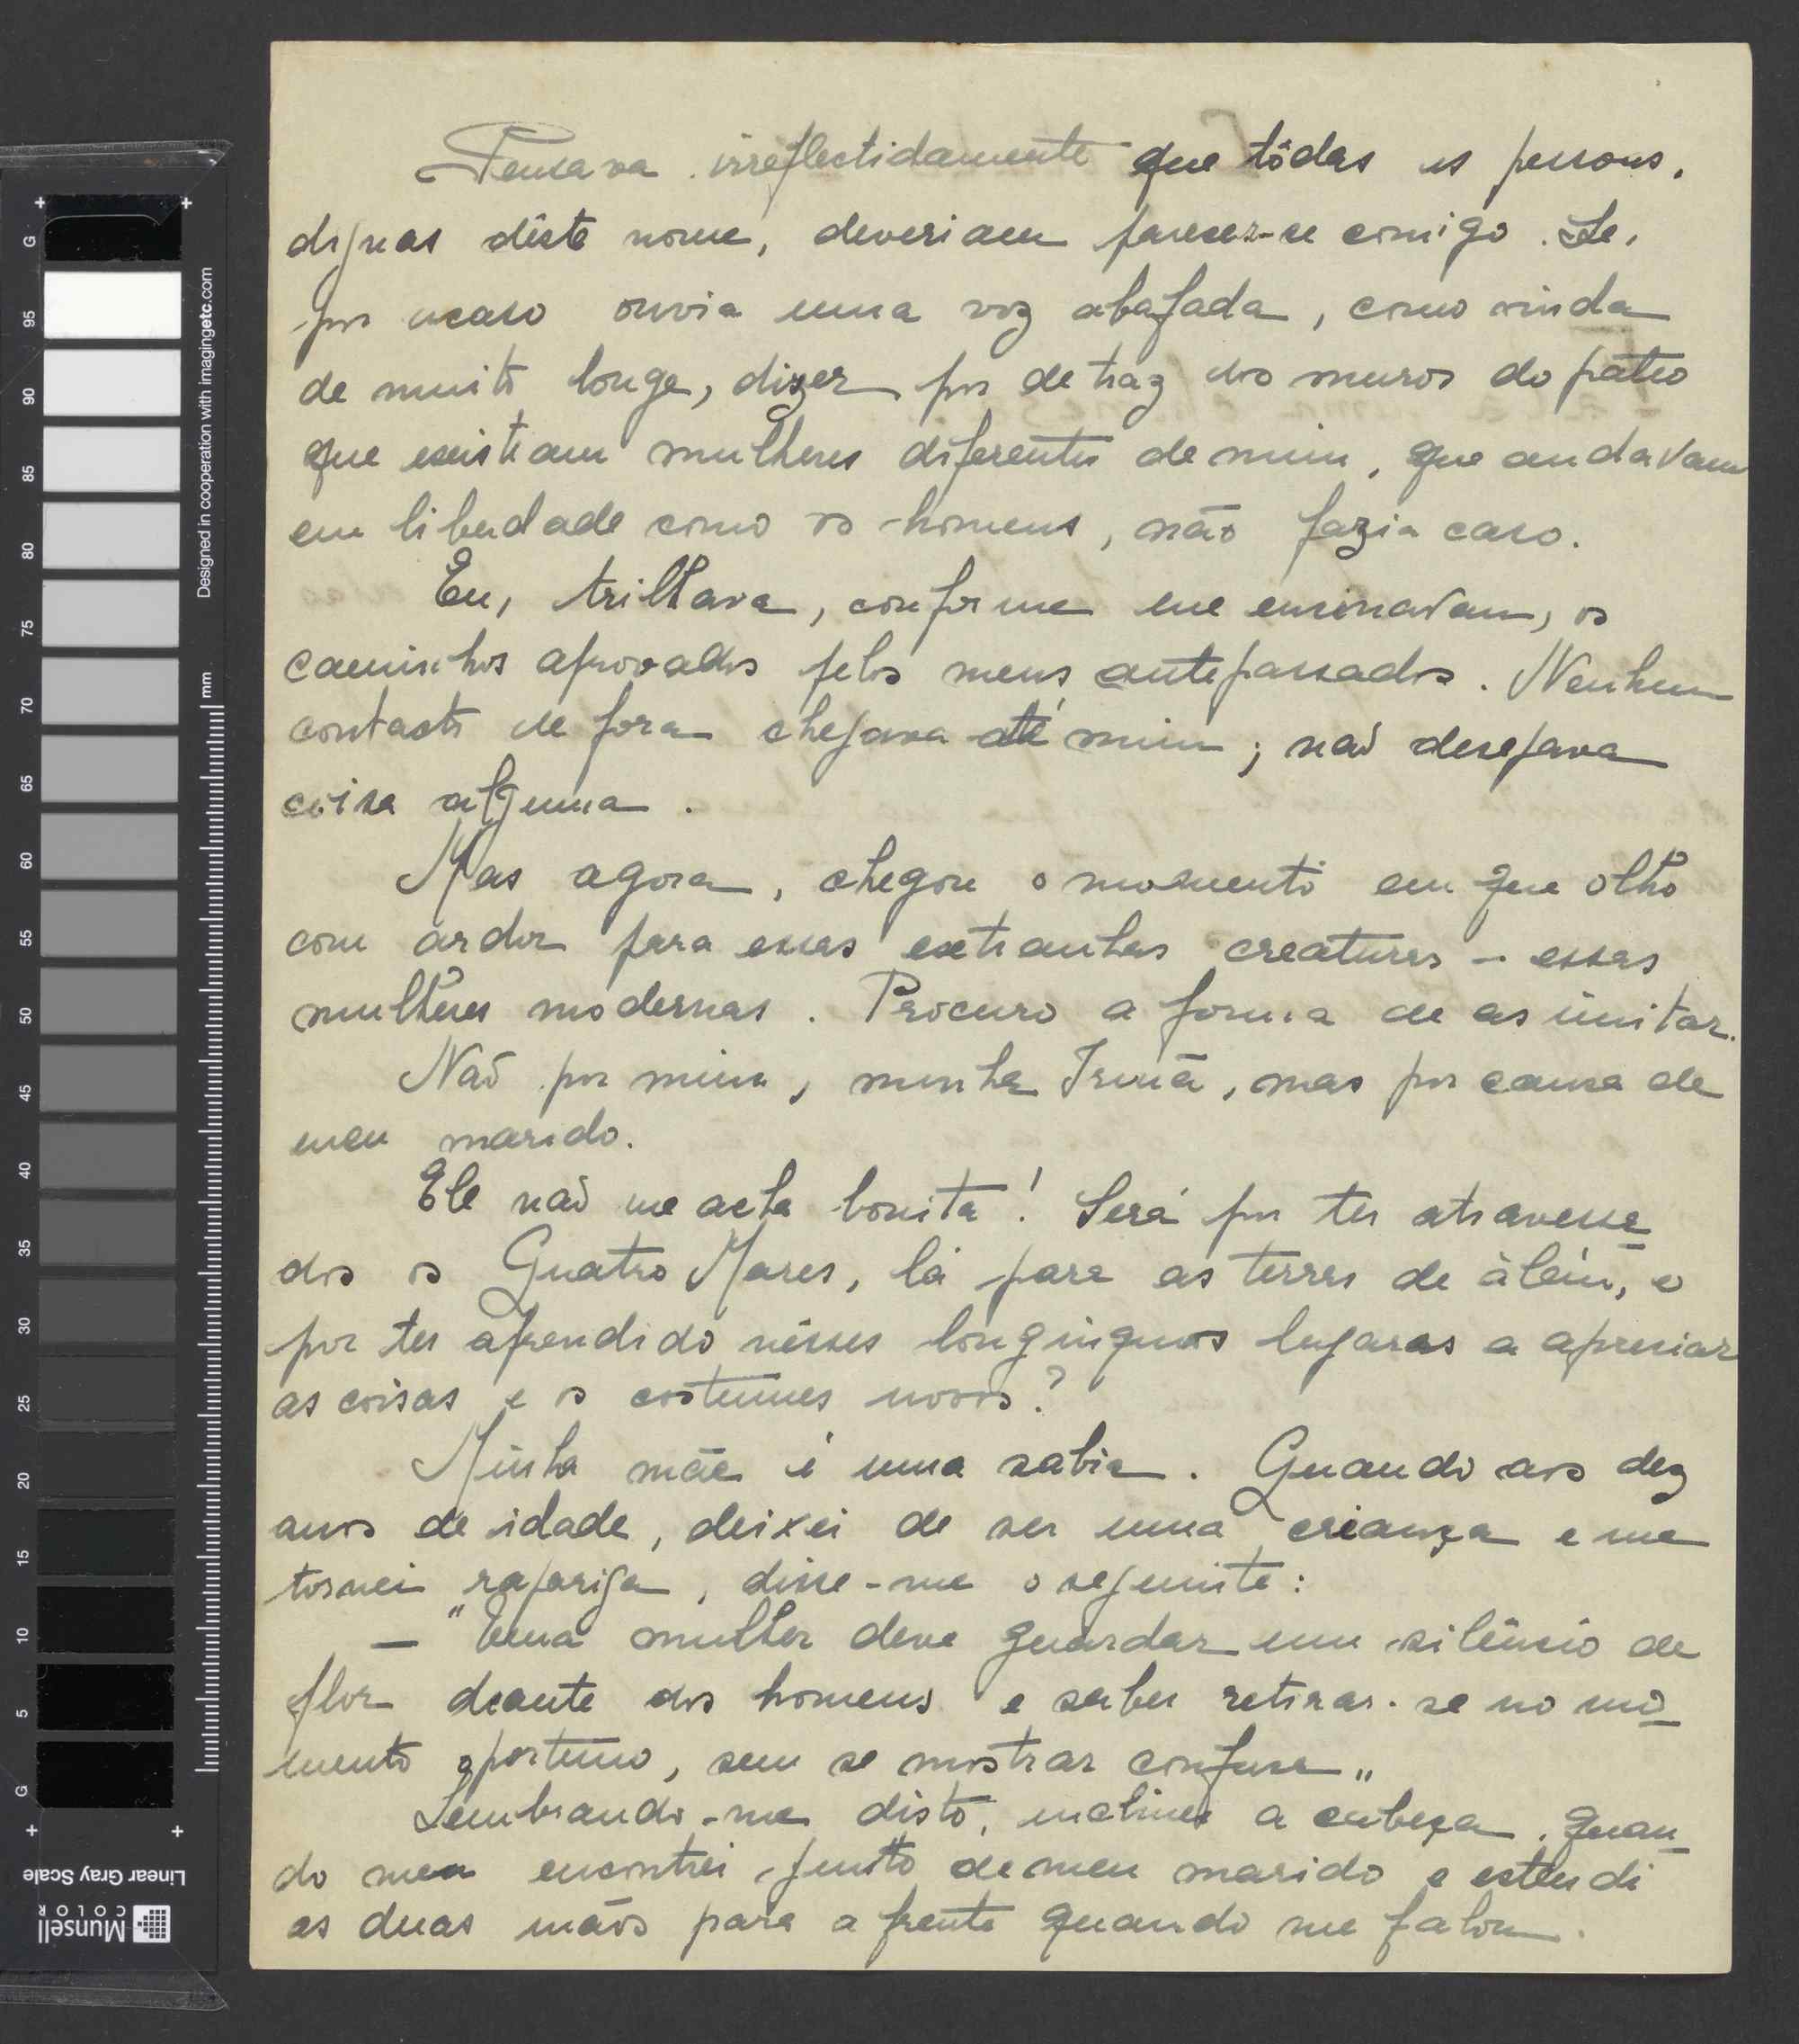 Pensava irreflectidamente que tôdas as pessoas,
dignas dêste nome, deveriam parecer-se comigo. Se,
por acaso ouvia uma voz abafada, como vinda
de muito longe, dizer por detraz dos muros do páteo
que existiam mulheres diferentes de mim, que andavam
em liberdade como os homens, não fazia caso.
Eu, trilhava, conforme me ensinavam, os
caminhos aprovados pelos meus antepassados. Nenhum
contacto de fora chegava até mim; não desejava
coisa alguma.
Mas agora, chegou o momento em que olho
com ardor para essas extranhas creaturas – essas
mulheres modernas. Procuro a forma de as imitar.
Não por mim, minha Irmã, mas por causa de
meu marido.
Ele não me acha bonita! Será por ter atravessa
dos os Quatro Mares, lá para as terras de àlém, e
por ter aprendido nêsses longínquos lugaras a apreciar
as coisas e os costumes novos?
Minha mãe é uma sabia. Quando aos dez
anos de idade, deixei de ser uma criança e me
tornei rapariga, disse-me o seguinte:
— "Uma mulher deve guardar um silêncio de
flor deante dos homens e saber retirar-se no mo
mento oportuno, sem se mostrar confusa„
Lembrando-me disto, inclinei a cabeça, quan
do me encontrei junto de meu marido e estendi
as duas mãos para a frente quando me falou.
Designed in cooperation with imagingetc.com
mm
+ +
G
95
90
85
80
75
70
65
60
55
50
45
40
35
30
25
20
15
10
5
G
+ +
Linear Gray Scale
Munsell
COLOR